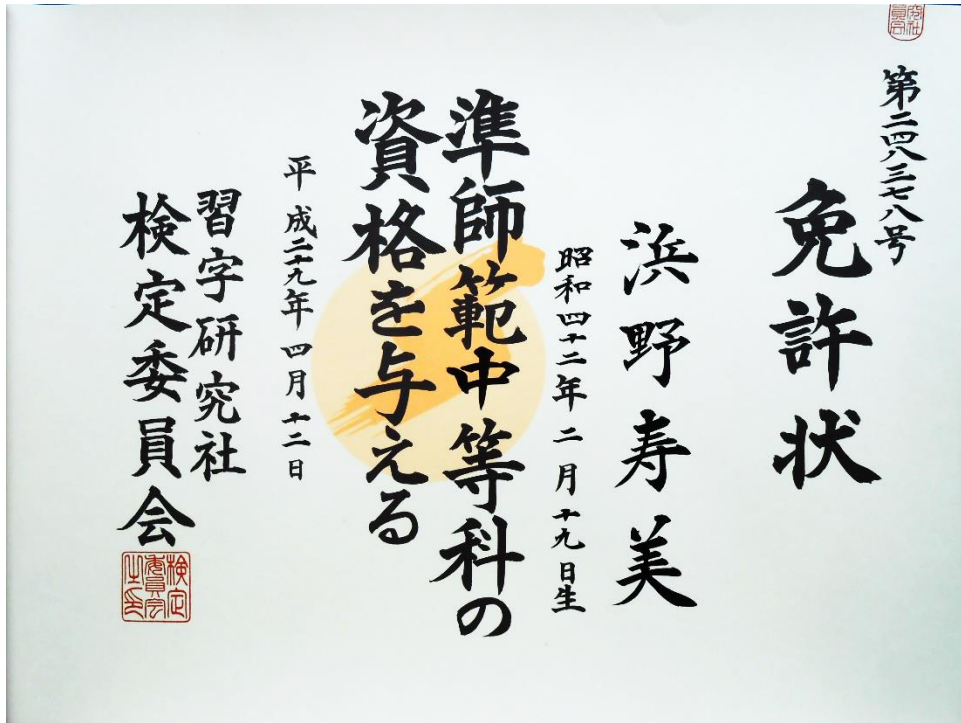 第二四八三七八号
免許状
浜野寿美
昭和四十二年二月十九日生
準師範中等科の
資格を与える
平成二十九年四月十二日
習字研究社
検定委員会
検定
委員会
之印